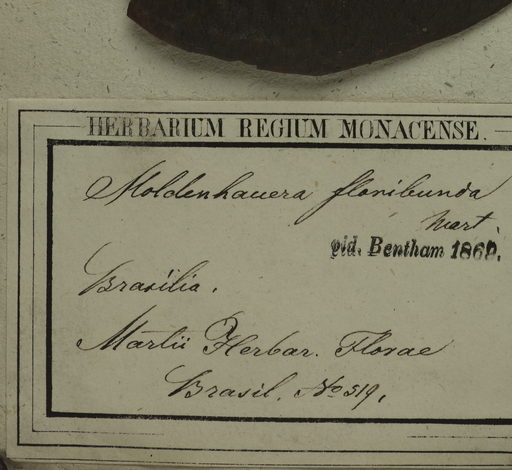 HERBARIUM REGIUM MONACENSE.
Moldenhauera floribunda
Mart.
vid. Bentham 1869.
Brasilia.
Martii Herbar. Florae
Brasil. No 519.